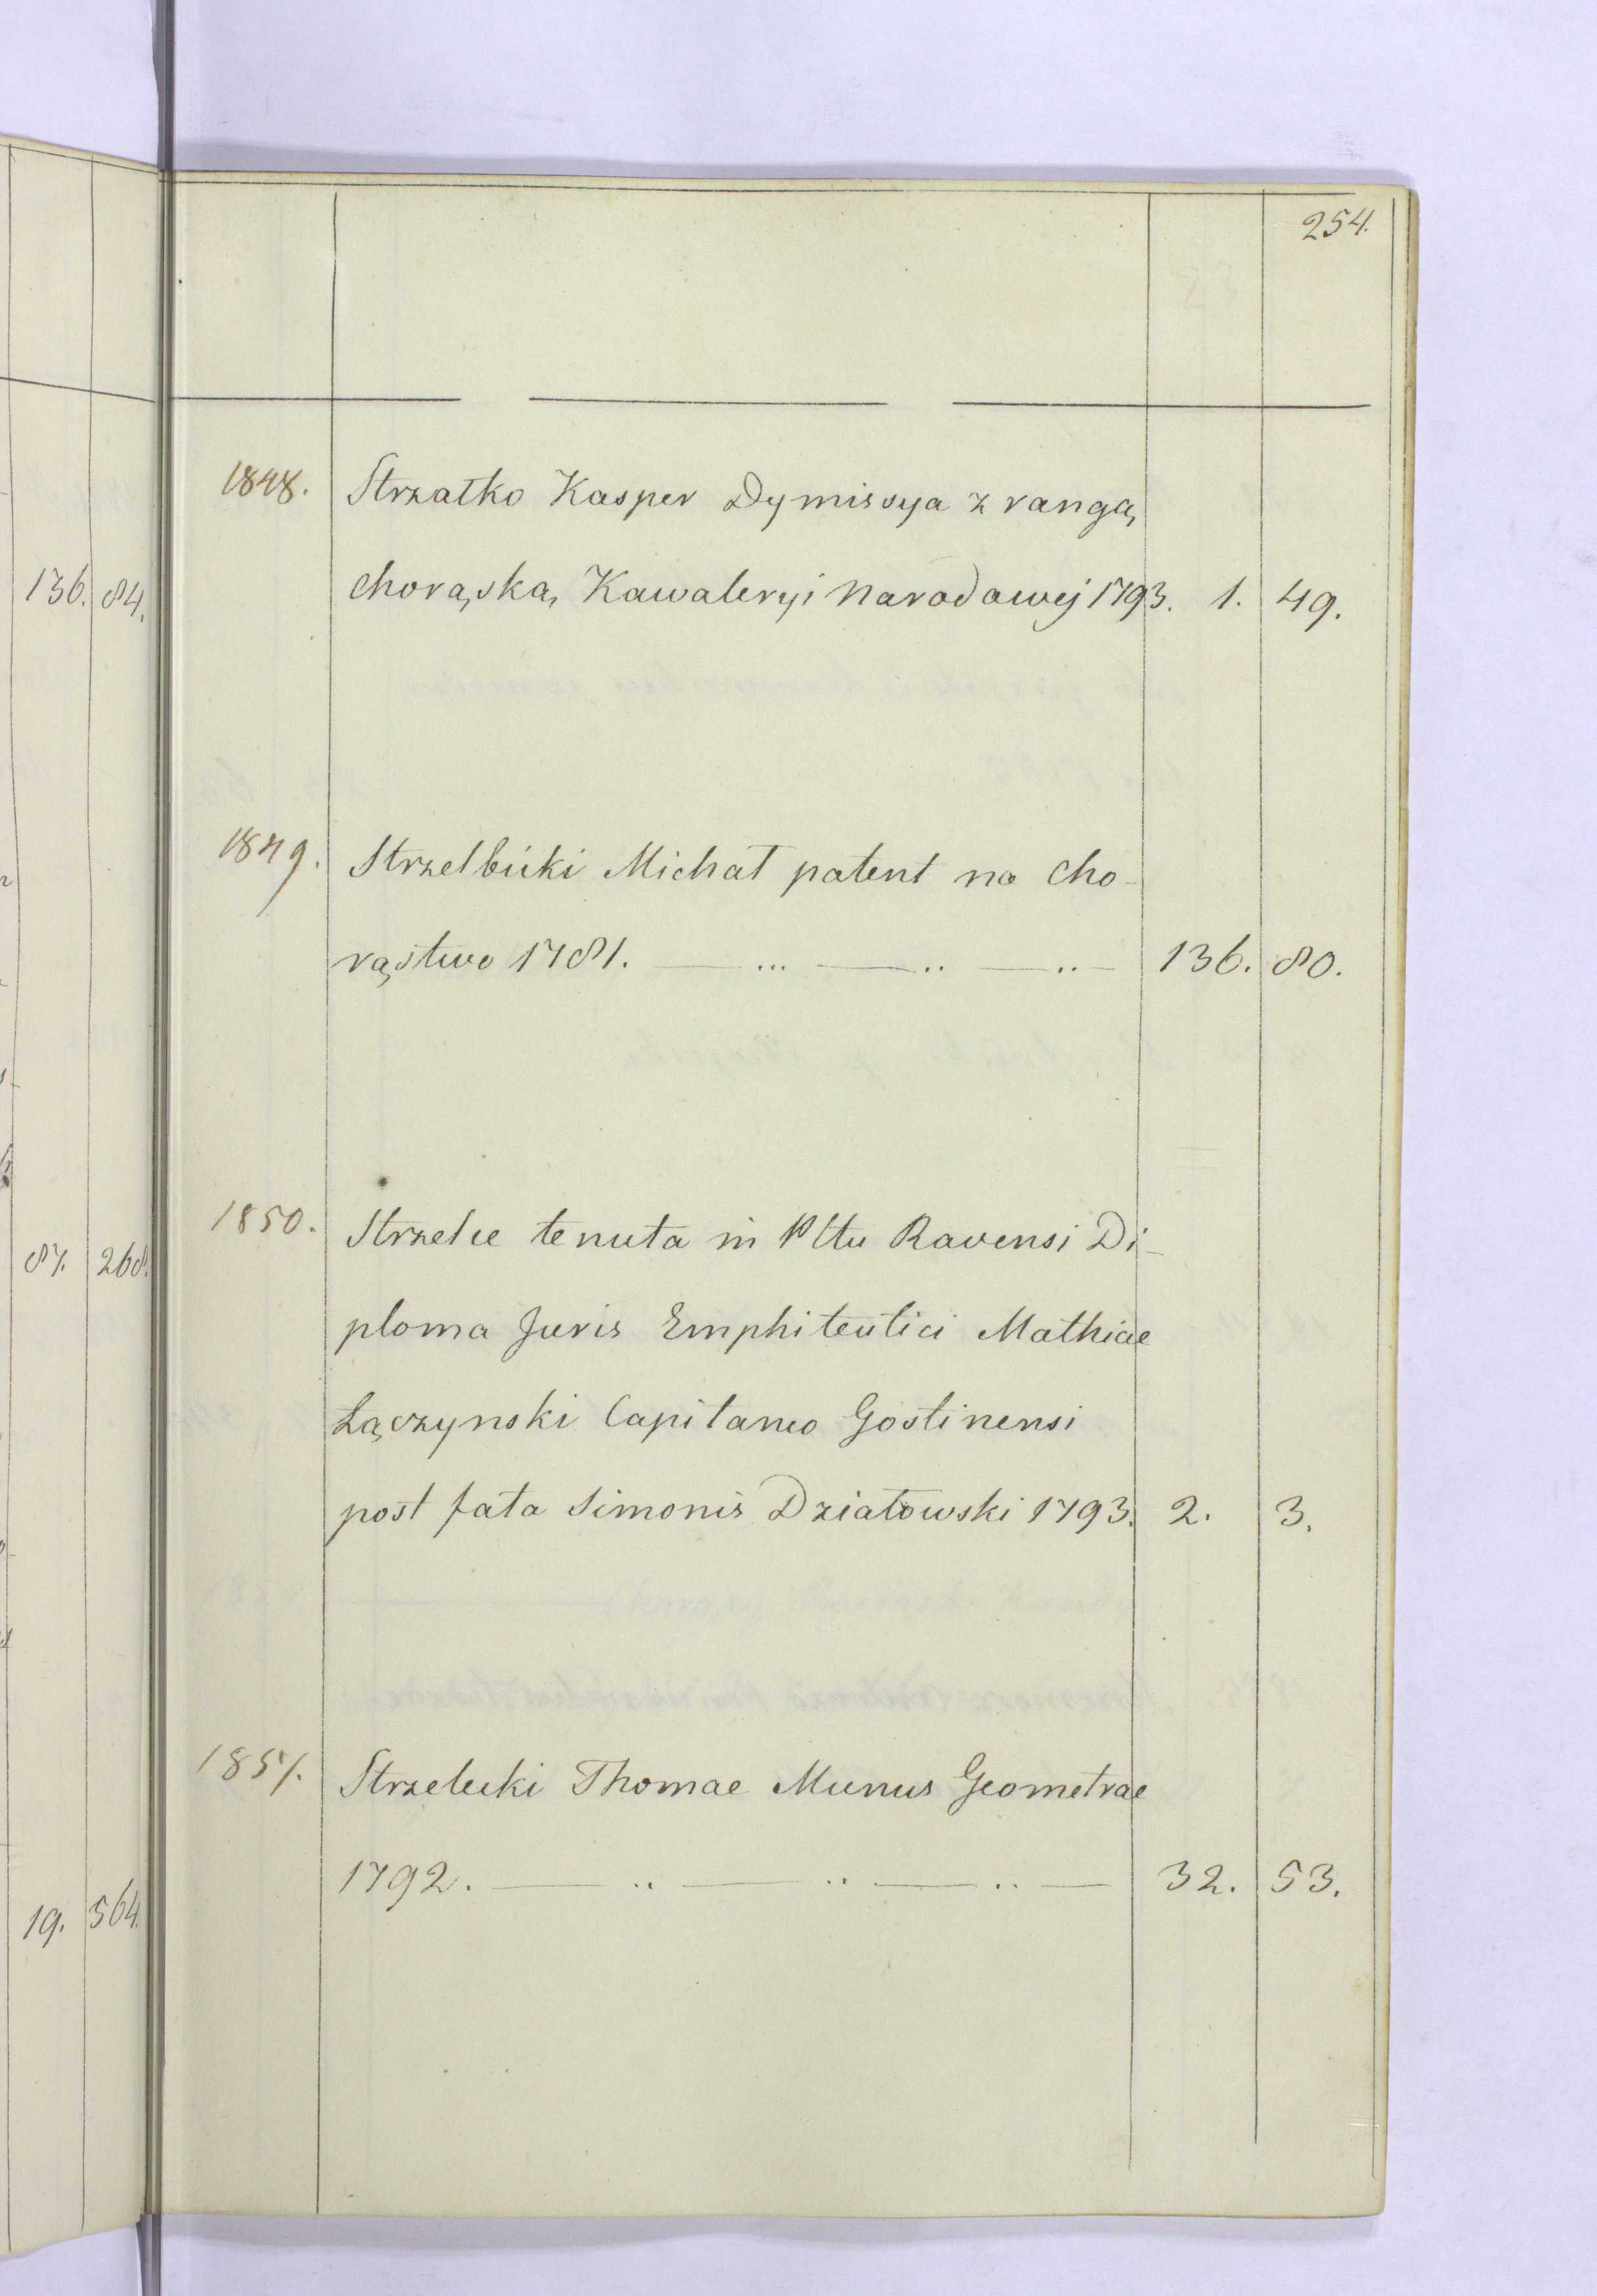 254.
136. 84.
87. 268.
19. 564.
1848. Strzałko Kasper Dymissya z rangą
chorąską Kawaleryi Narodowej 1793. 1. 49.
1849. Strzelbicki Michał patent na Cho-
rąstwo 1781. — ... — .. — .. — 136. 80.
1850. Strzelce tenuta in Pltu Ravensi Di-
ploma Juris Emphiteutici Mathiae
Łączynski Capitaneo Gostinensi
post fata Simonis Działowski 1793. 2. 3.
1851. Strzelecki Thomae Munus Geometrae
1792. — .. — .. — .. — 32. 53.